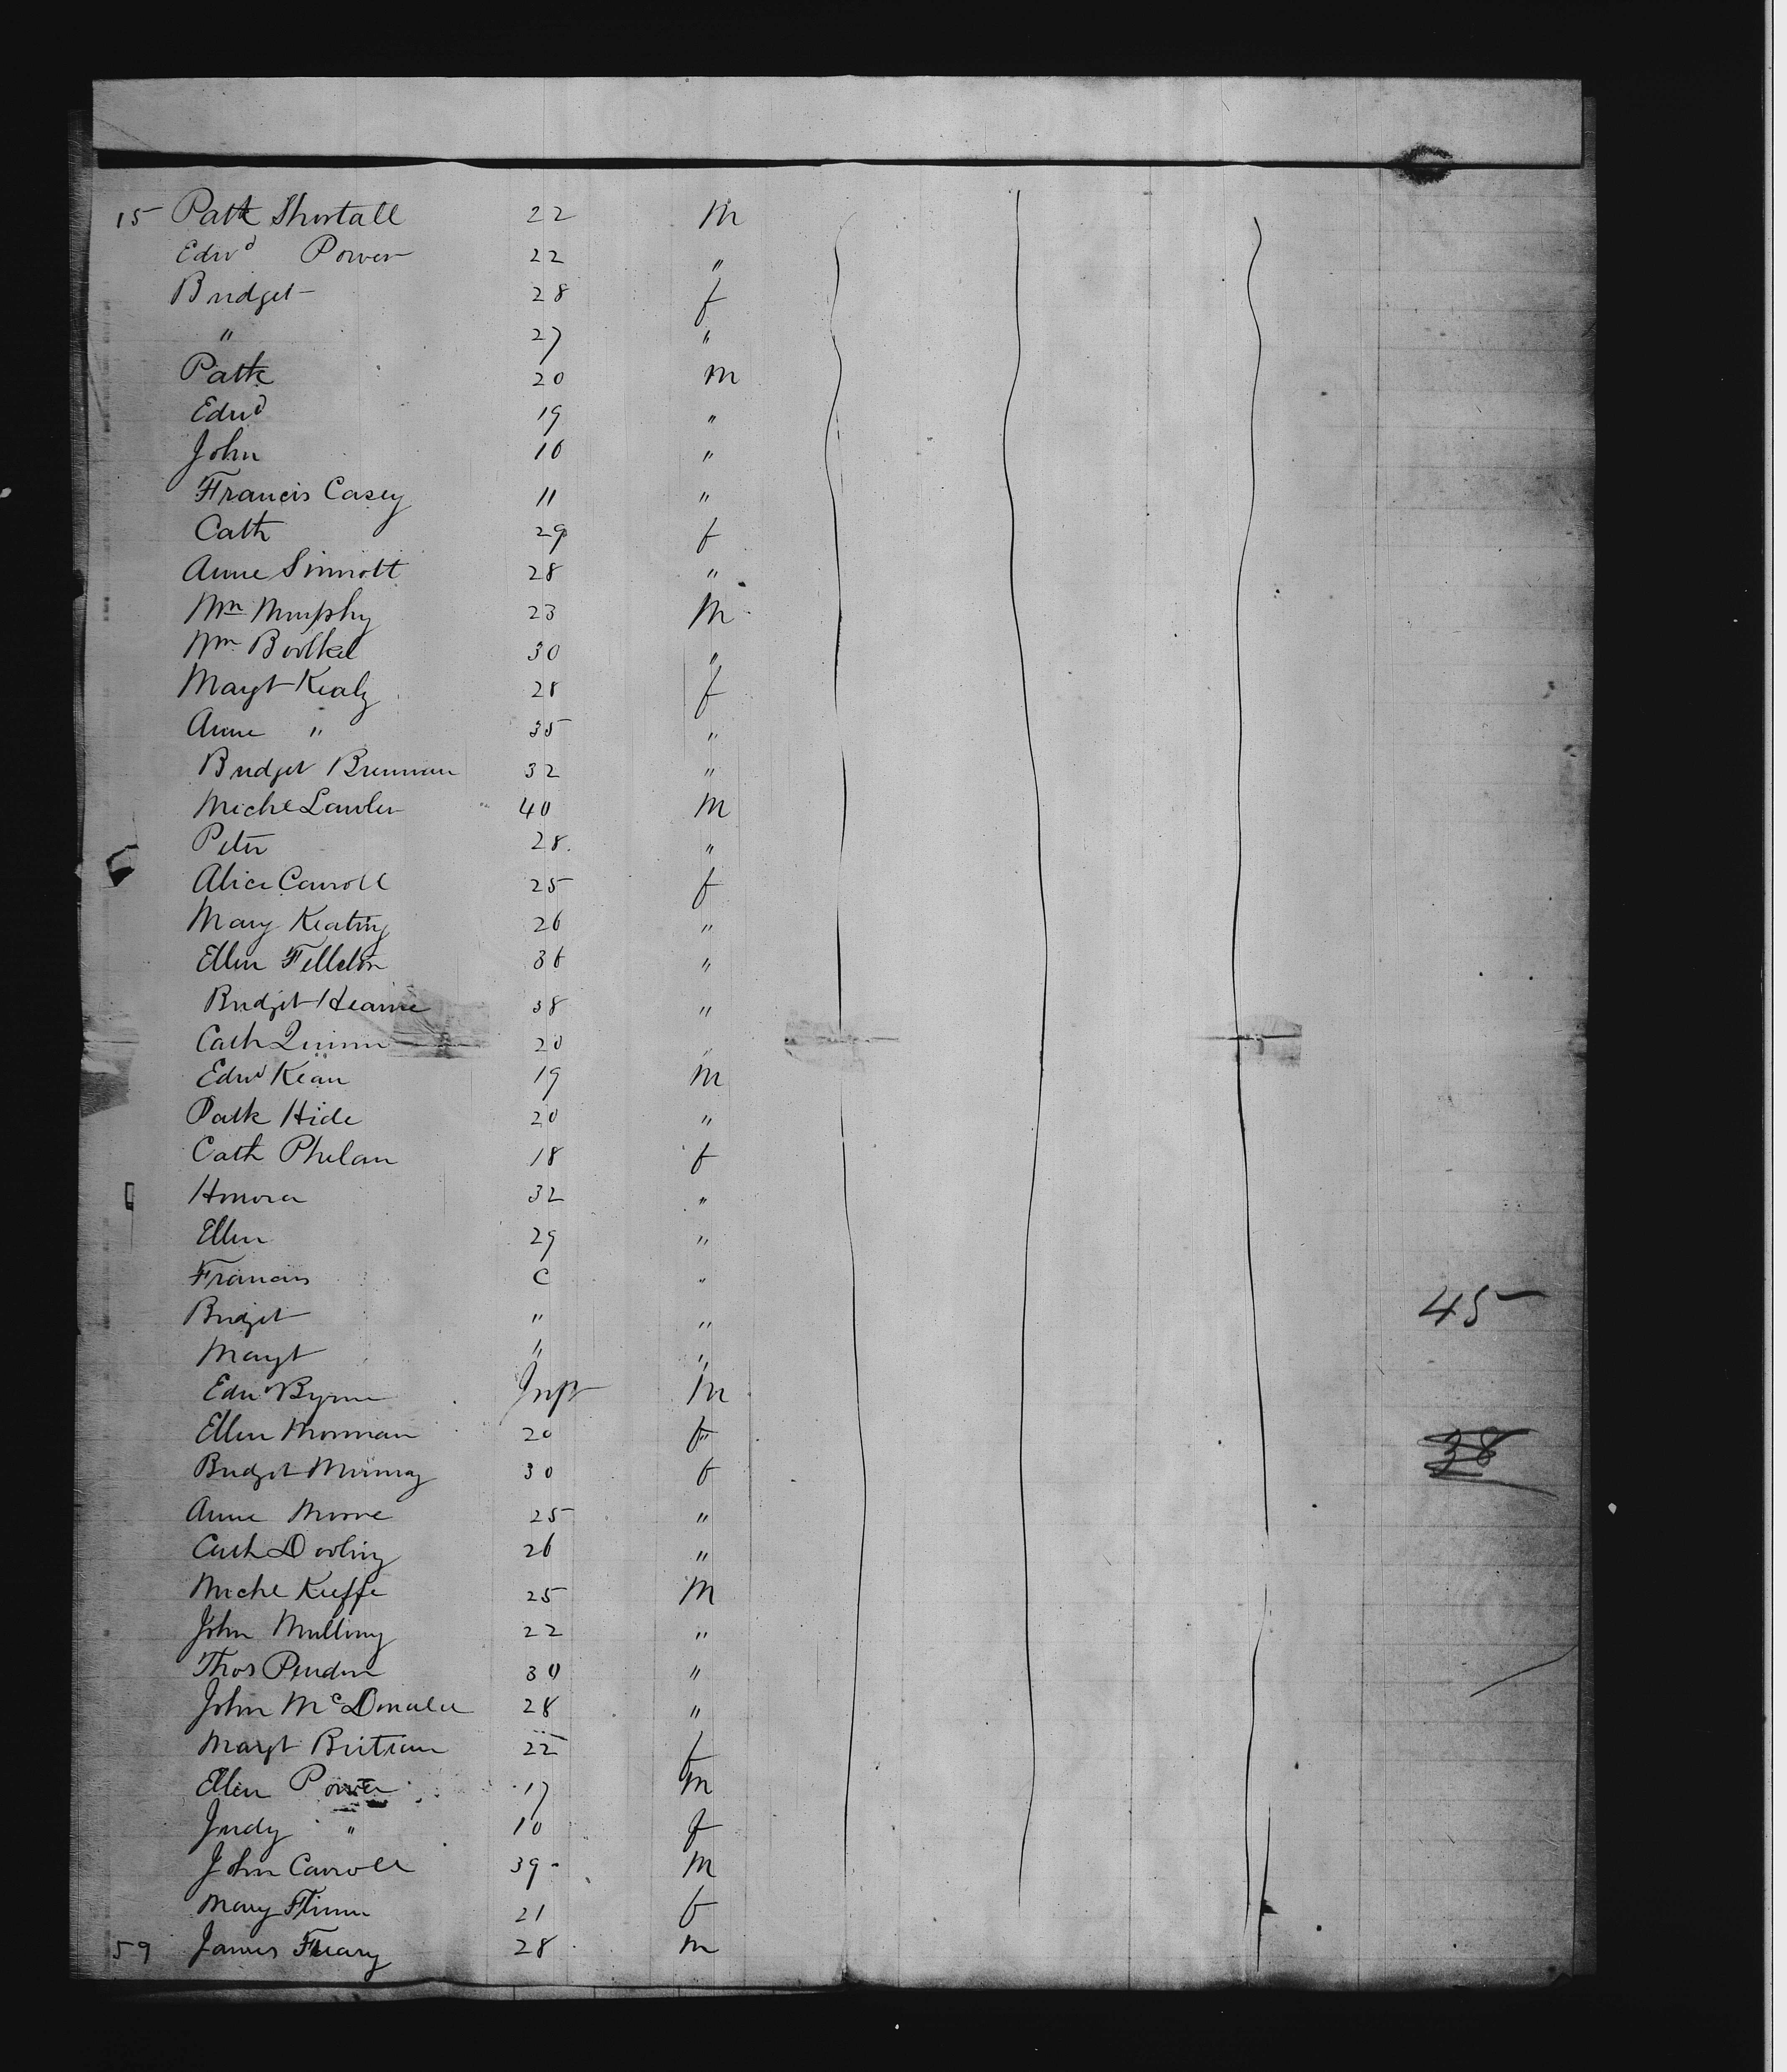 15 Patk Shortall 22 M
Edwd Power 22 "
Bridget 28 f
" 27 "
Patk 20 M
Edwd 19 "
John 10 "
Francis Casey 11 "
Cath 29 f
Anne Sinnott 28 "
Wm Murphy 23 M
Wm 30 "
Margt Kealy 28 f
Anne " 35 "
Bridget Brennan 32 "
Michl Lawler 40 M
Peter 28. "
Alice Carroll 25 f
Mary Keating 26 "
Ellen 36 "
Bridget Hearne 38 "
Cath Quinn 20 "
Edwd Kean 19 M
Patk Hide 20 "
Cath Phelan 18 f
Honora 32 "
Ellen 29 "
Francis C "
Bridget " " 45
Margt " "
Edwd Byrne Inft M
Ellen 20 f
38
Bridget Murray 30 f
Anne Moore 25 "
Cath Dooling 26 "
Michl Keeffe 25 M
John Mulling 22 "
Thos 30 "
John McDonald 28 "
Margt 22 f
Ellen Power 17 M
Judy " 10 f
John Carroll 39 M
Mary Flinn 21 f
59 James 28 M